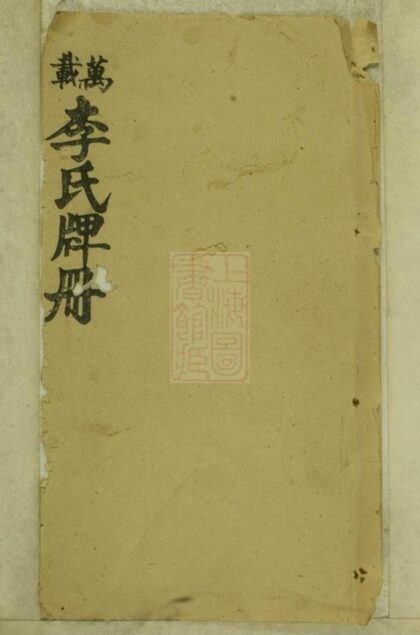 萬載
李氏牌冊
上海圖書館藏